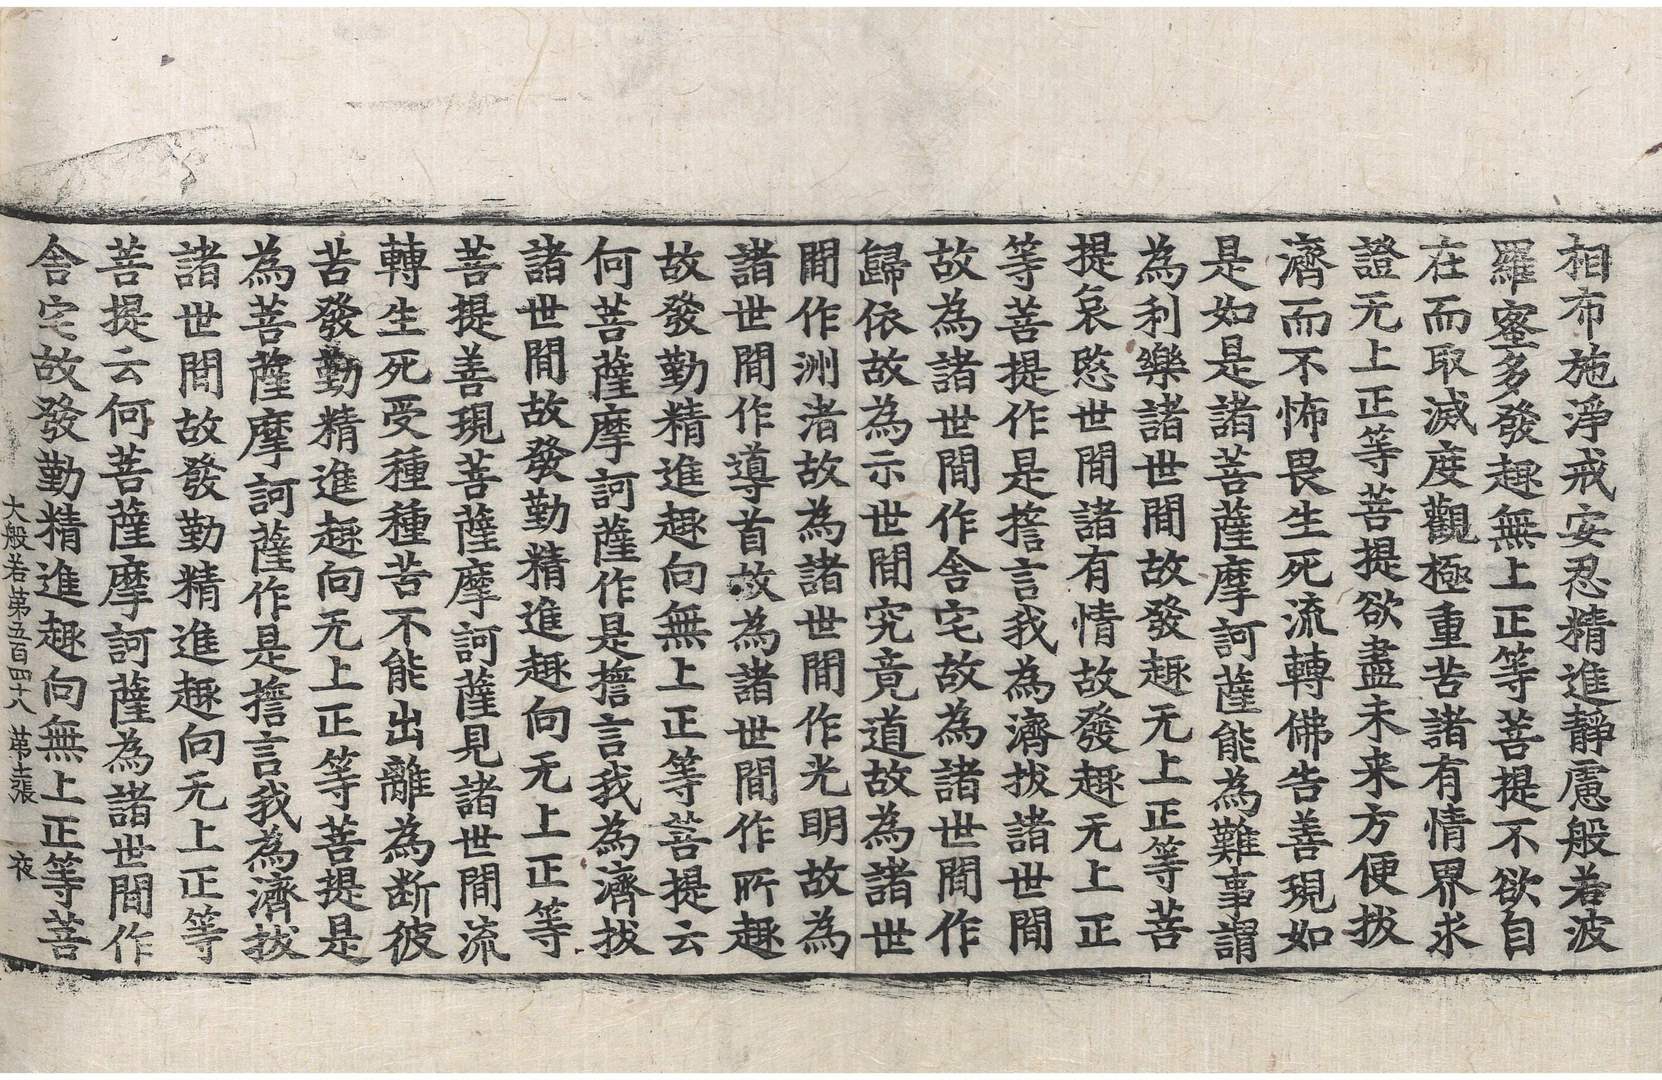 相布施淨戒安忍精進靜慮般若波
羅蜜多發趣無上正等菩提不欲自
在而取滅度觀極重苦諸有情界求
證无上正等菩提欲盡未来方便拔
濟而不怖畏生死流轉佛告善現如
是如是諸菩薩摩訶薩能為難事謂
為利樂諸世間故發趣无上正等菩
提哀愍世間諸有情故發趣无上正
等菩提作是擔言我為濟拔諸世間
故為諸世間作舍宅故為諸世間作
歸依故為示世間究竟道故為諸世
間作洲渚故為諸世間作光明故為
諸世間作導首故為諸世間作所趣
故發勤精進趣向無上正等菩提云
何菩薩摩訶薩作是擔言我為濟拔
諸世間故發勤精進趣向无上正等
菩提善現菩薩摩訶薩見諸世間流
轉生死受種種苦不能出離為斷彼
苦發勤精進趣向无上正等菩提是
為菩薩摩訶薩作是擔言我為濟拔
諸世間故發勤精進趣向无上正等
菩提云何菩薩摩訶薩為諸世間作
舍宅故發勤精進趣向無上正等菩
大般若第五百四十八 第 張 夜